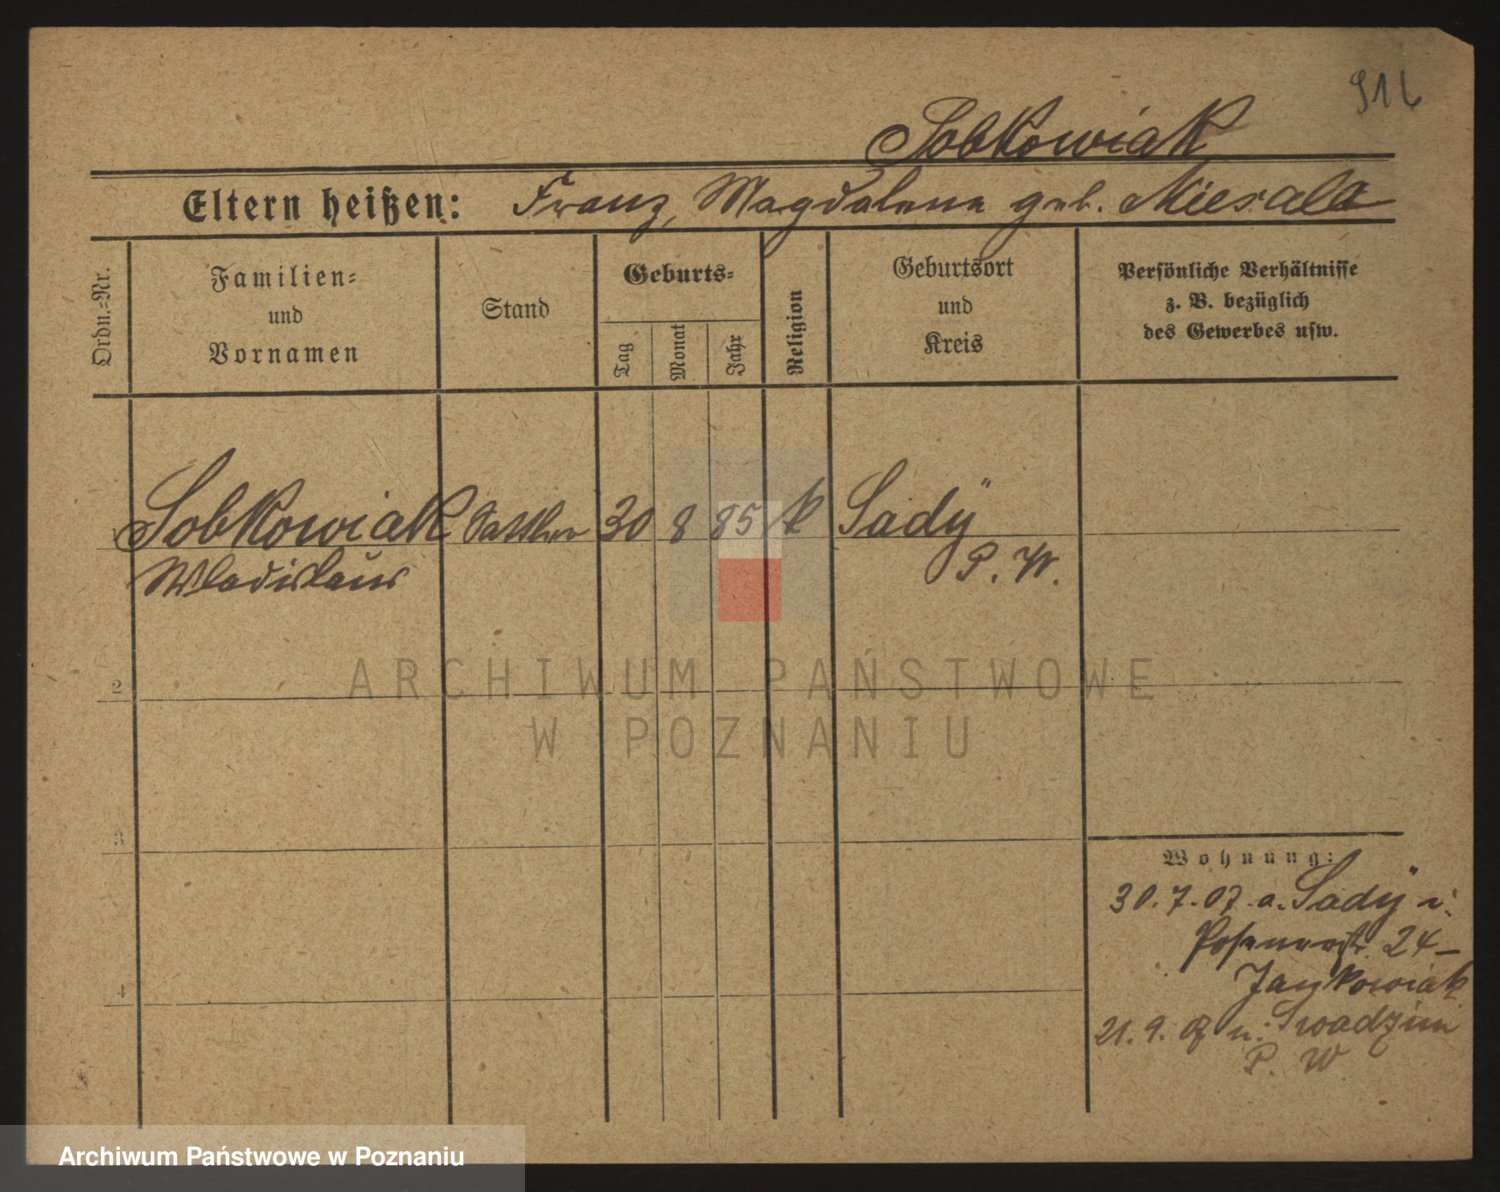 916
Sobkowiak
Eltern heißen: Franz, Magdalena geb. Miesala
Ordn.-Nr.
Familien-
und
Vornamen
Stand
Geburts-
Tag
Monat
Jahr
Religion
Geburtsort
und
Kreis
Persönliche Verhältnisse
z. B. bezüglich
des Gewerbes usw.
1 Sobkowiak Sattler 30 8 85 k Sady
Wladislaus P. W.
2
3
4
Wohnung:
30.7.07 a. Sady i:
Posenerstr. 24-
Jankowiak
21. 9. 07 n: Swadzim
P. W
ARCHIWUM PAŃSTWOWE
W POZNANIU
Archiwum Państwowe w Poznaniu